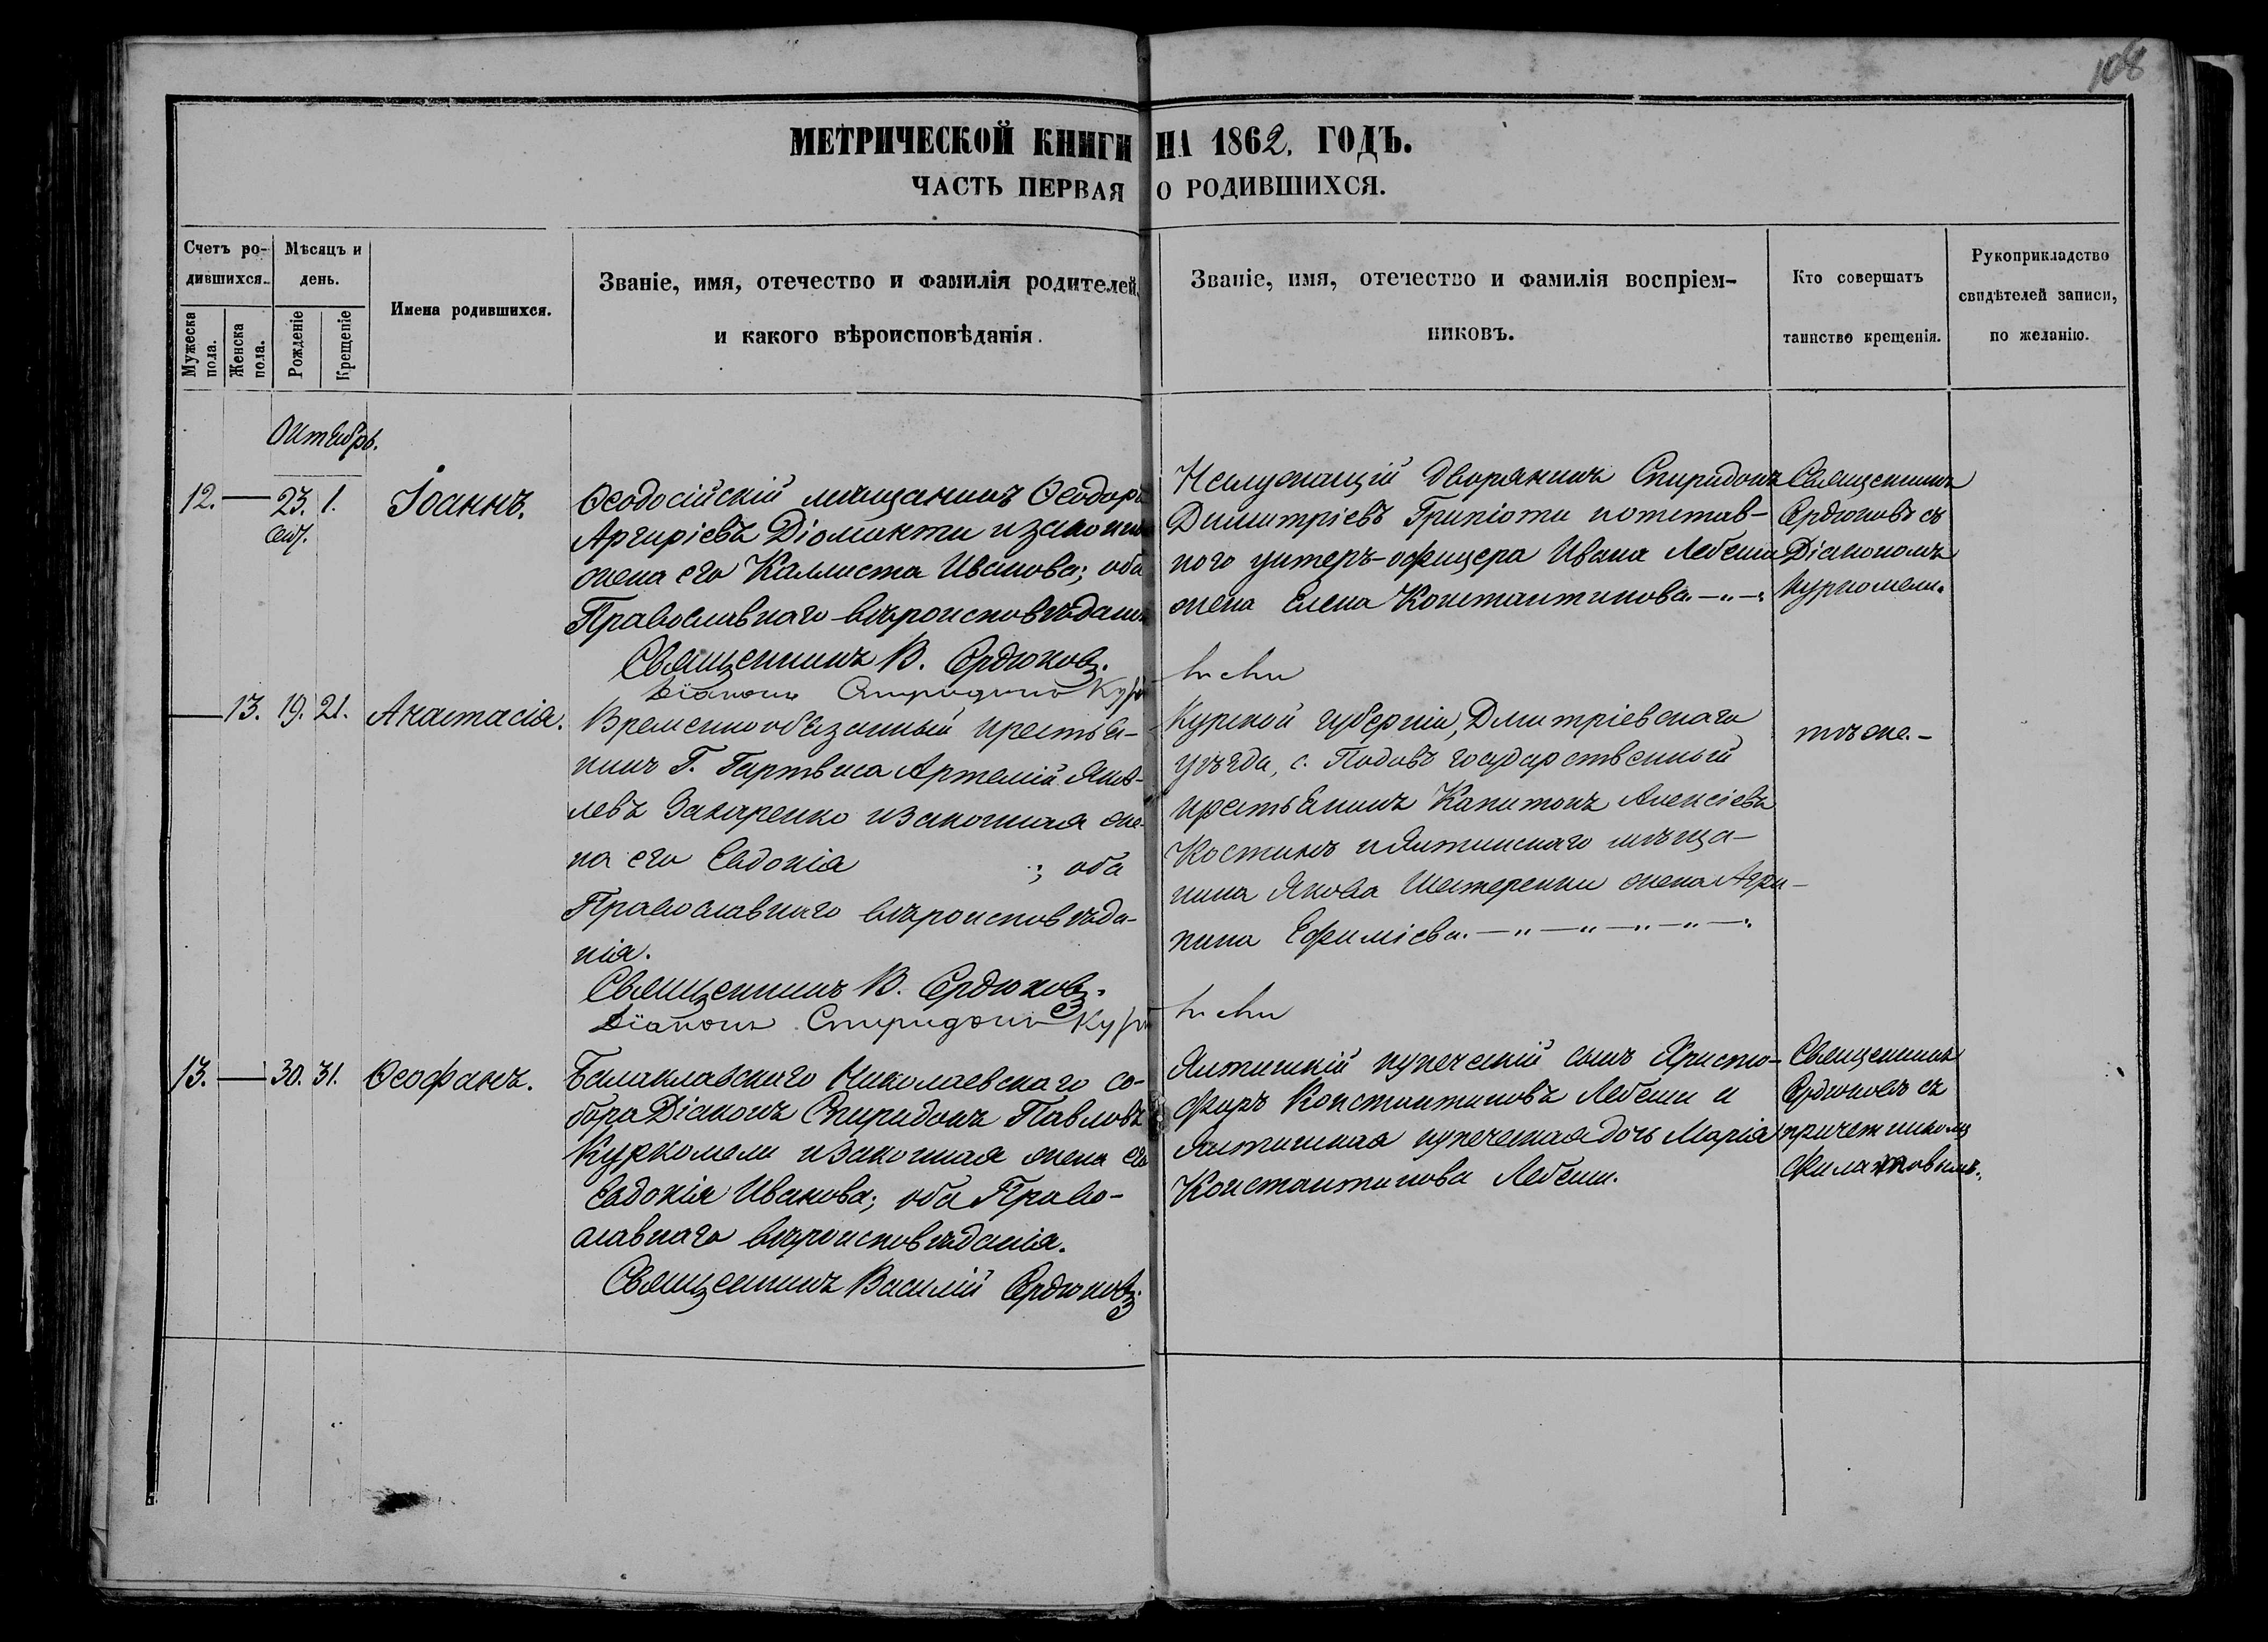 108
МЕТРИЧЕСКОЙ КНИГИ НА 1862. ГОДЪ.
ЧАСТЬ ПЕРВАЯ О РОДИВШИХСЯ.
Счетъ ро-
дившихся.
Мужеска
пола.
Женска
пола.
Мѣсяцъ и
день.
Рожденіе
Крещеніе
Имена родившихся.
Званіе, имя, отечество и фамилія родителей,
и какого вѣроисповѣданія.
Званіе, имя, отечество и фамилія воспріем-
никовъ.
Кто совершатъ
таинство крещенія.
Рукоприкладство
свидѣтелей записи,
по желанію.
Октябрь.
12. — 23. 1. Іоаннъ.
Сен.
Ѳеодосійскій мѣщанинъ Ѳеодоръ
Аргиріевъ Діоманти и законная
жена его Каллиста Иванова; оба
Православнаго вѣроисповѣданія
Священникъ В. Сердюковъ.
Діаконъ Спиридонъ Кур
Неслужащій дворянинъ Спиридонъ
Димитріевъ Грипіоти и отстав-
ного унтеръ-офицера Ивана Лебеши
жена Елена Константинова. — „ —
Священникъ
Сердюковъ съ
Діакономъ
Куркомели.
— 13. 19. 21. Анастасія.
Временнообязанный крестья-
нинъ Г. Гартвиса Артемій Яков-
левъ Захаренко и законная же-
на его Евдокія ; оба
Православнаго вѣроисповѣда-
нія.
Священникъ В. Сердюковъ.
Діаконъ Спиридонъ Кур
Курской губерніи, Дмитріевскаго
уѣзда, с. Подовъ государственный
крестьянинъ Капитонъ Алексіевъ
Костинъ и Ялтинскаго мѣща-
нина Якова Шетеренки жена Агри-
пина Ефиміева. — „ — „ — „ — „ —
тѣже. —
13. — 30. 31. Ѳеофанъ.
Балаклавскаго Николаевскаго со-
бора Діаконъ Спиридонъ Павловъ
Куркомели и законная жена его
Евдокія Иванова; оба Право-
славнаго вѣроисповѣданія.
Священникъ Василій Сердюковъ.
Ялтинскій купеческій сынъ Христо-
форъ Константиновъ Лебеши и
Ялтинская купеческая дочь Марія
Константинова Лебеши.
Священникъ
Сердюковъ съ
причетникомъ
Филатовымъ.